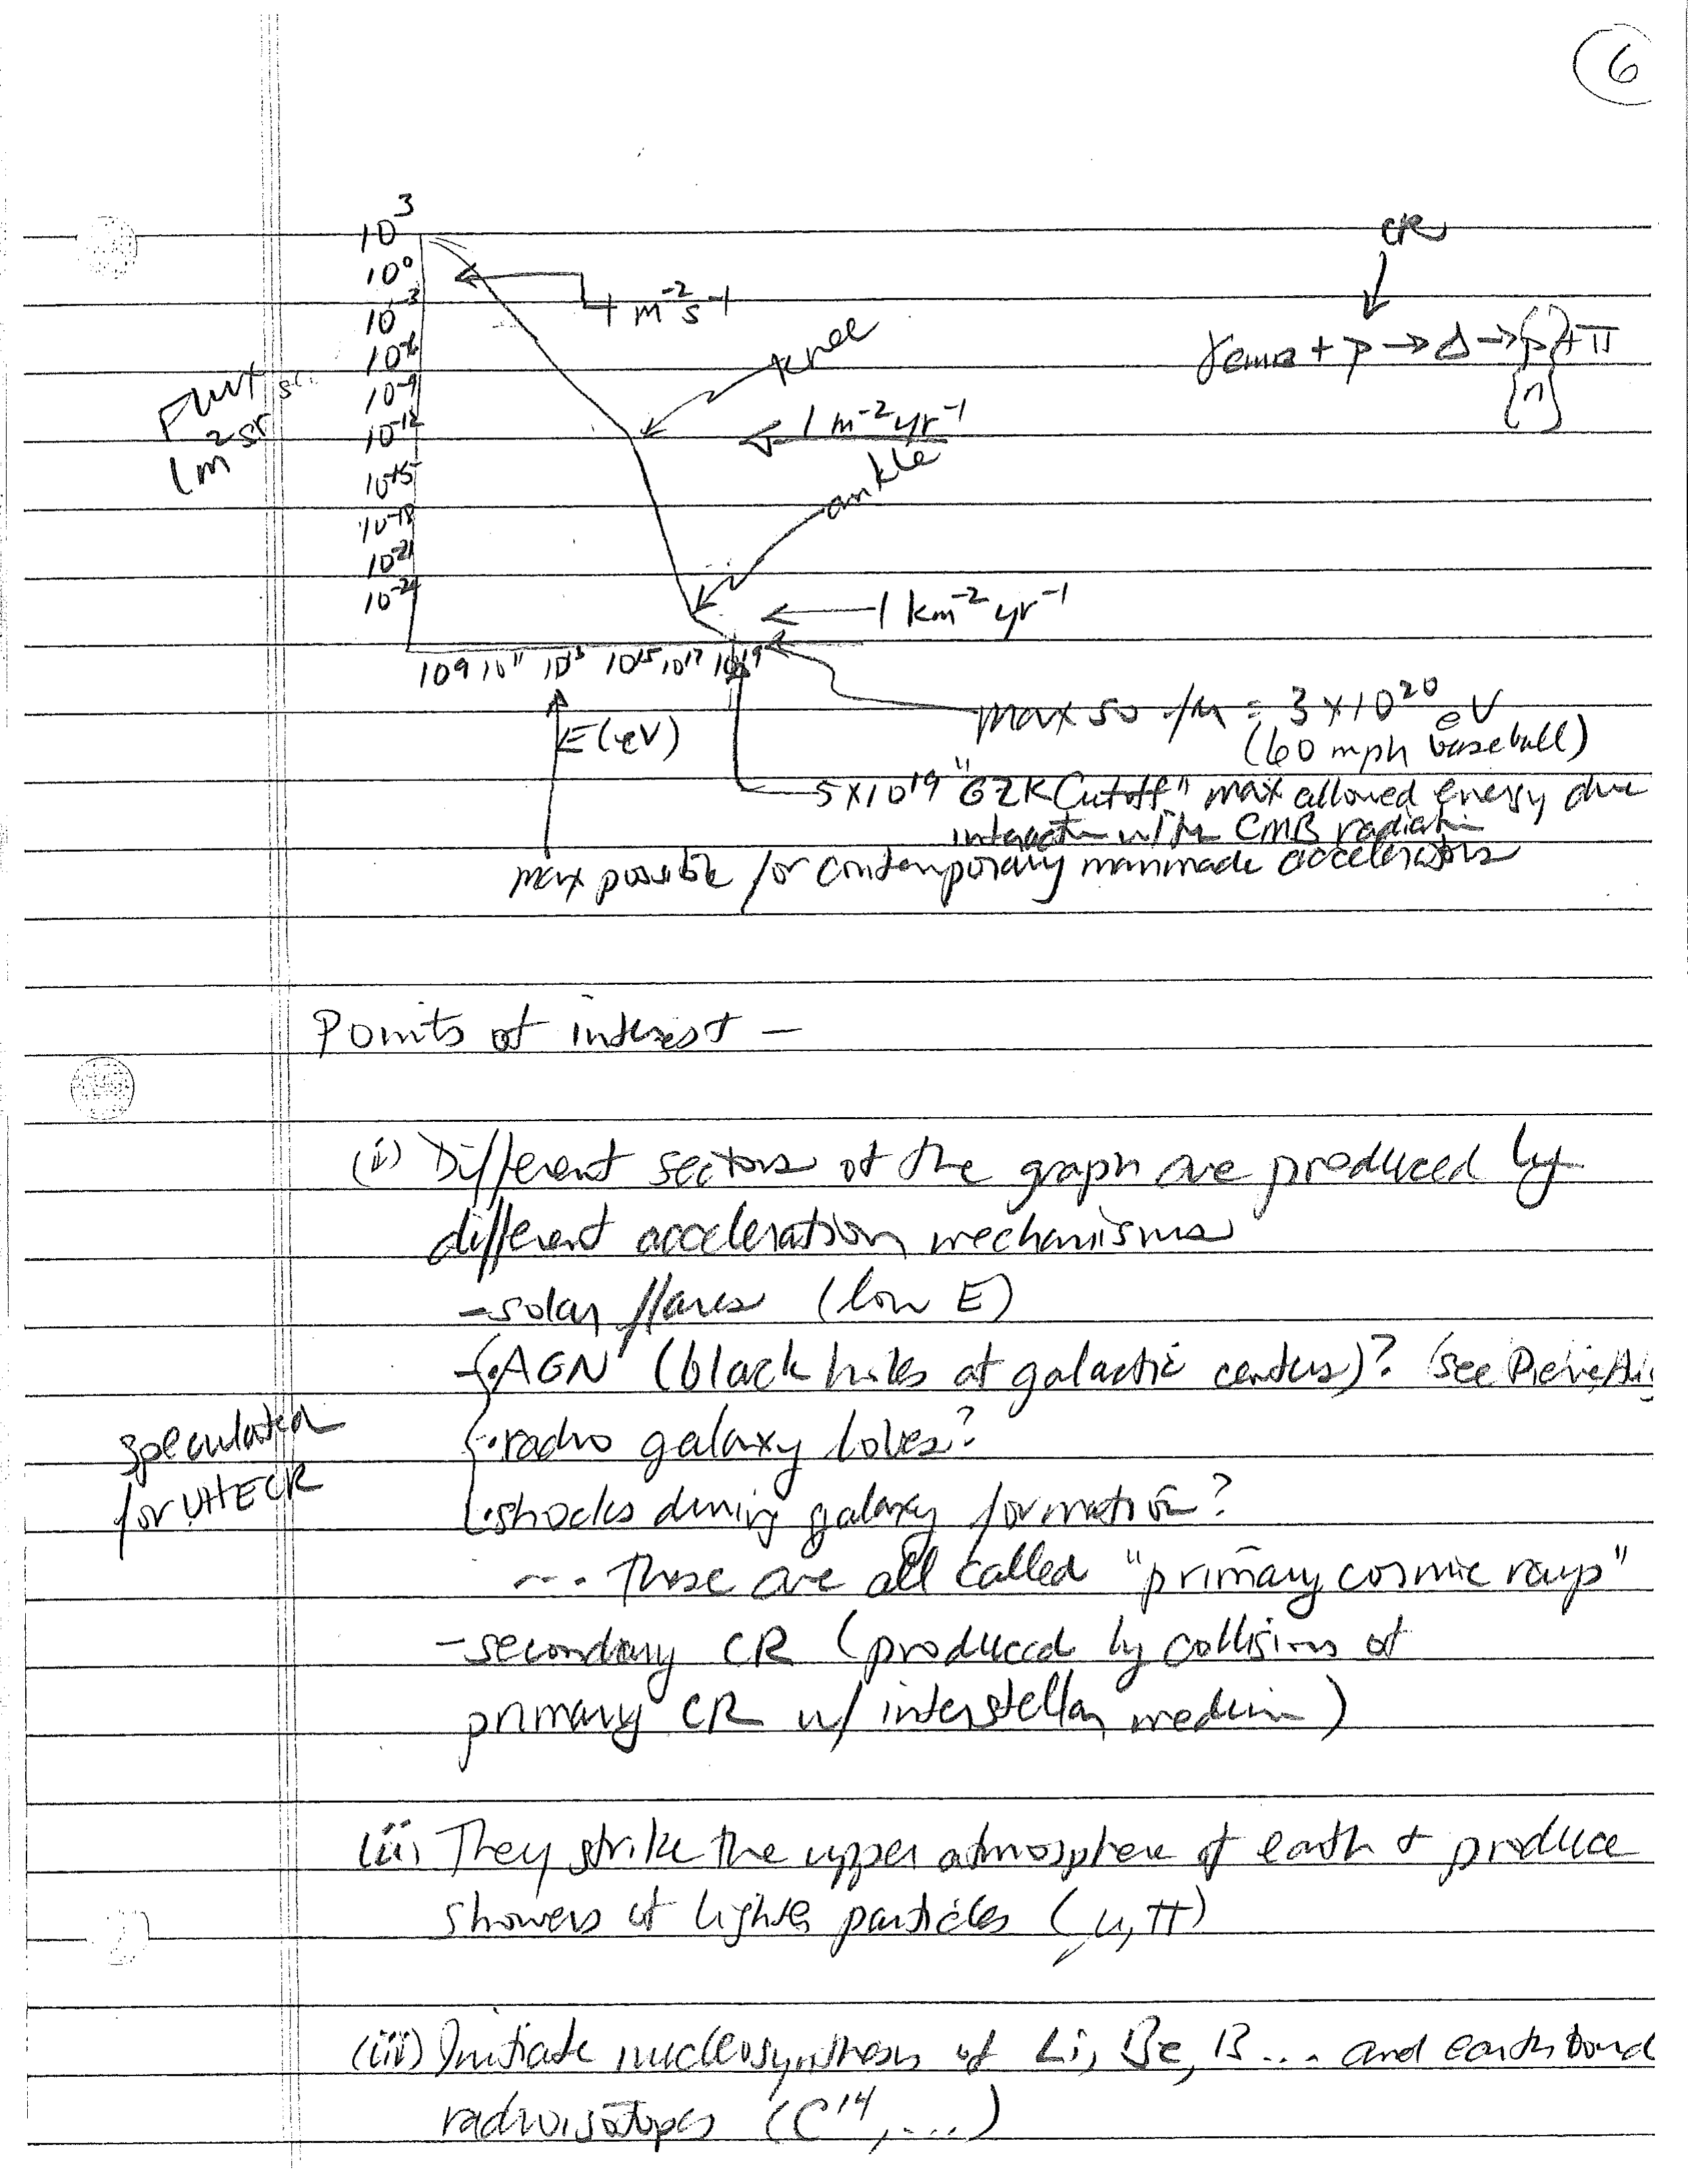 6
10³
10⁰
10⁻³
10⁻⁶
10⁻⁹
10⁻¹²
10⁻¹⁵
10⁻¹⁸
10⁻²¹
10⁻²⁴
Flux
(m² sr
1 m⁻²s⁻¹
knee
1 m⁻²yr⁻¹
ankle
1 km⁻² yr⁻¹
CR
γCMB + p → Δ → {p} + π
{n}
10⁹ 10¹¹ 10¹³ 10¹⁵ 10¹⁷ 10¹⁹
E(eV)
max so far = 3 × 10²⁰ eV
(60 mph baseball)
5×10¹⁹ "GZK Cutoff" max allowed energy due
interaction w/the CMB radiation
max possible for contemporary manmade accelerators
Points of interest —
(i) Different sectors of the graph are produced by
different acceleration mechanisms
- solar flares (low E)
- {· AGN (black holes at galactic centers)? (see
· radio galaxy lobes?
· shocks during galaxy formation?
speculated
for UHECR
... These are all called "primary cosmic rays"
- secondary CR (produced by collisions of
primary CR w/ interstellar medium)
(ii) They strike the upper atmosphere of earth & produce
showers of lighter particles (μ, π)
(iii) Initiate nucleosynthesis of Li, Be, B... and earthbound
radioisotopes (C¹⁴, ...)